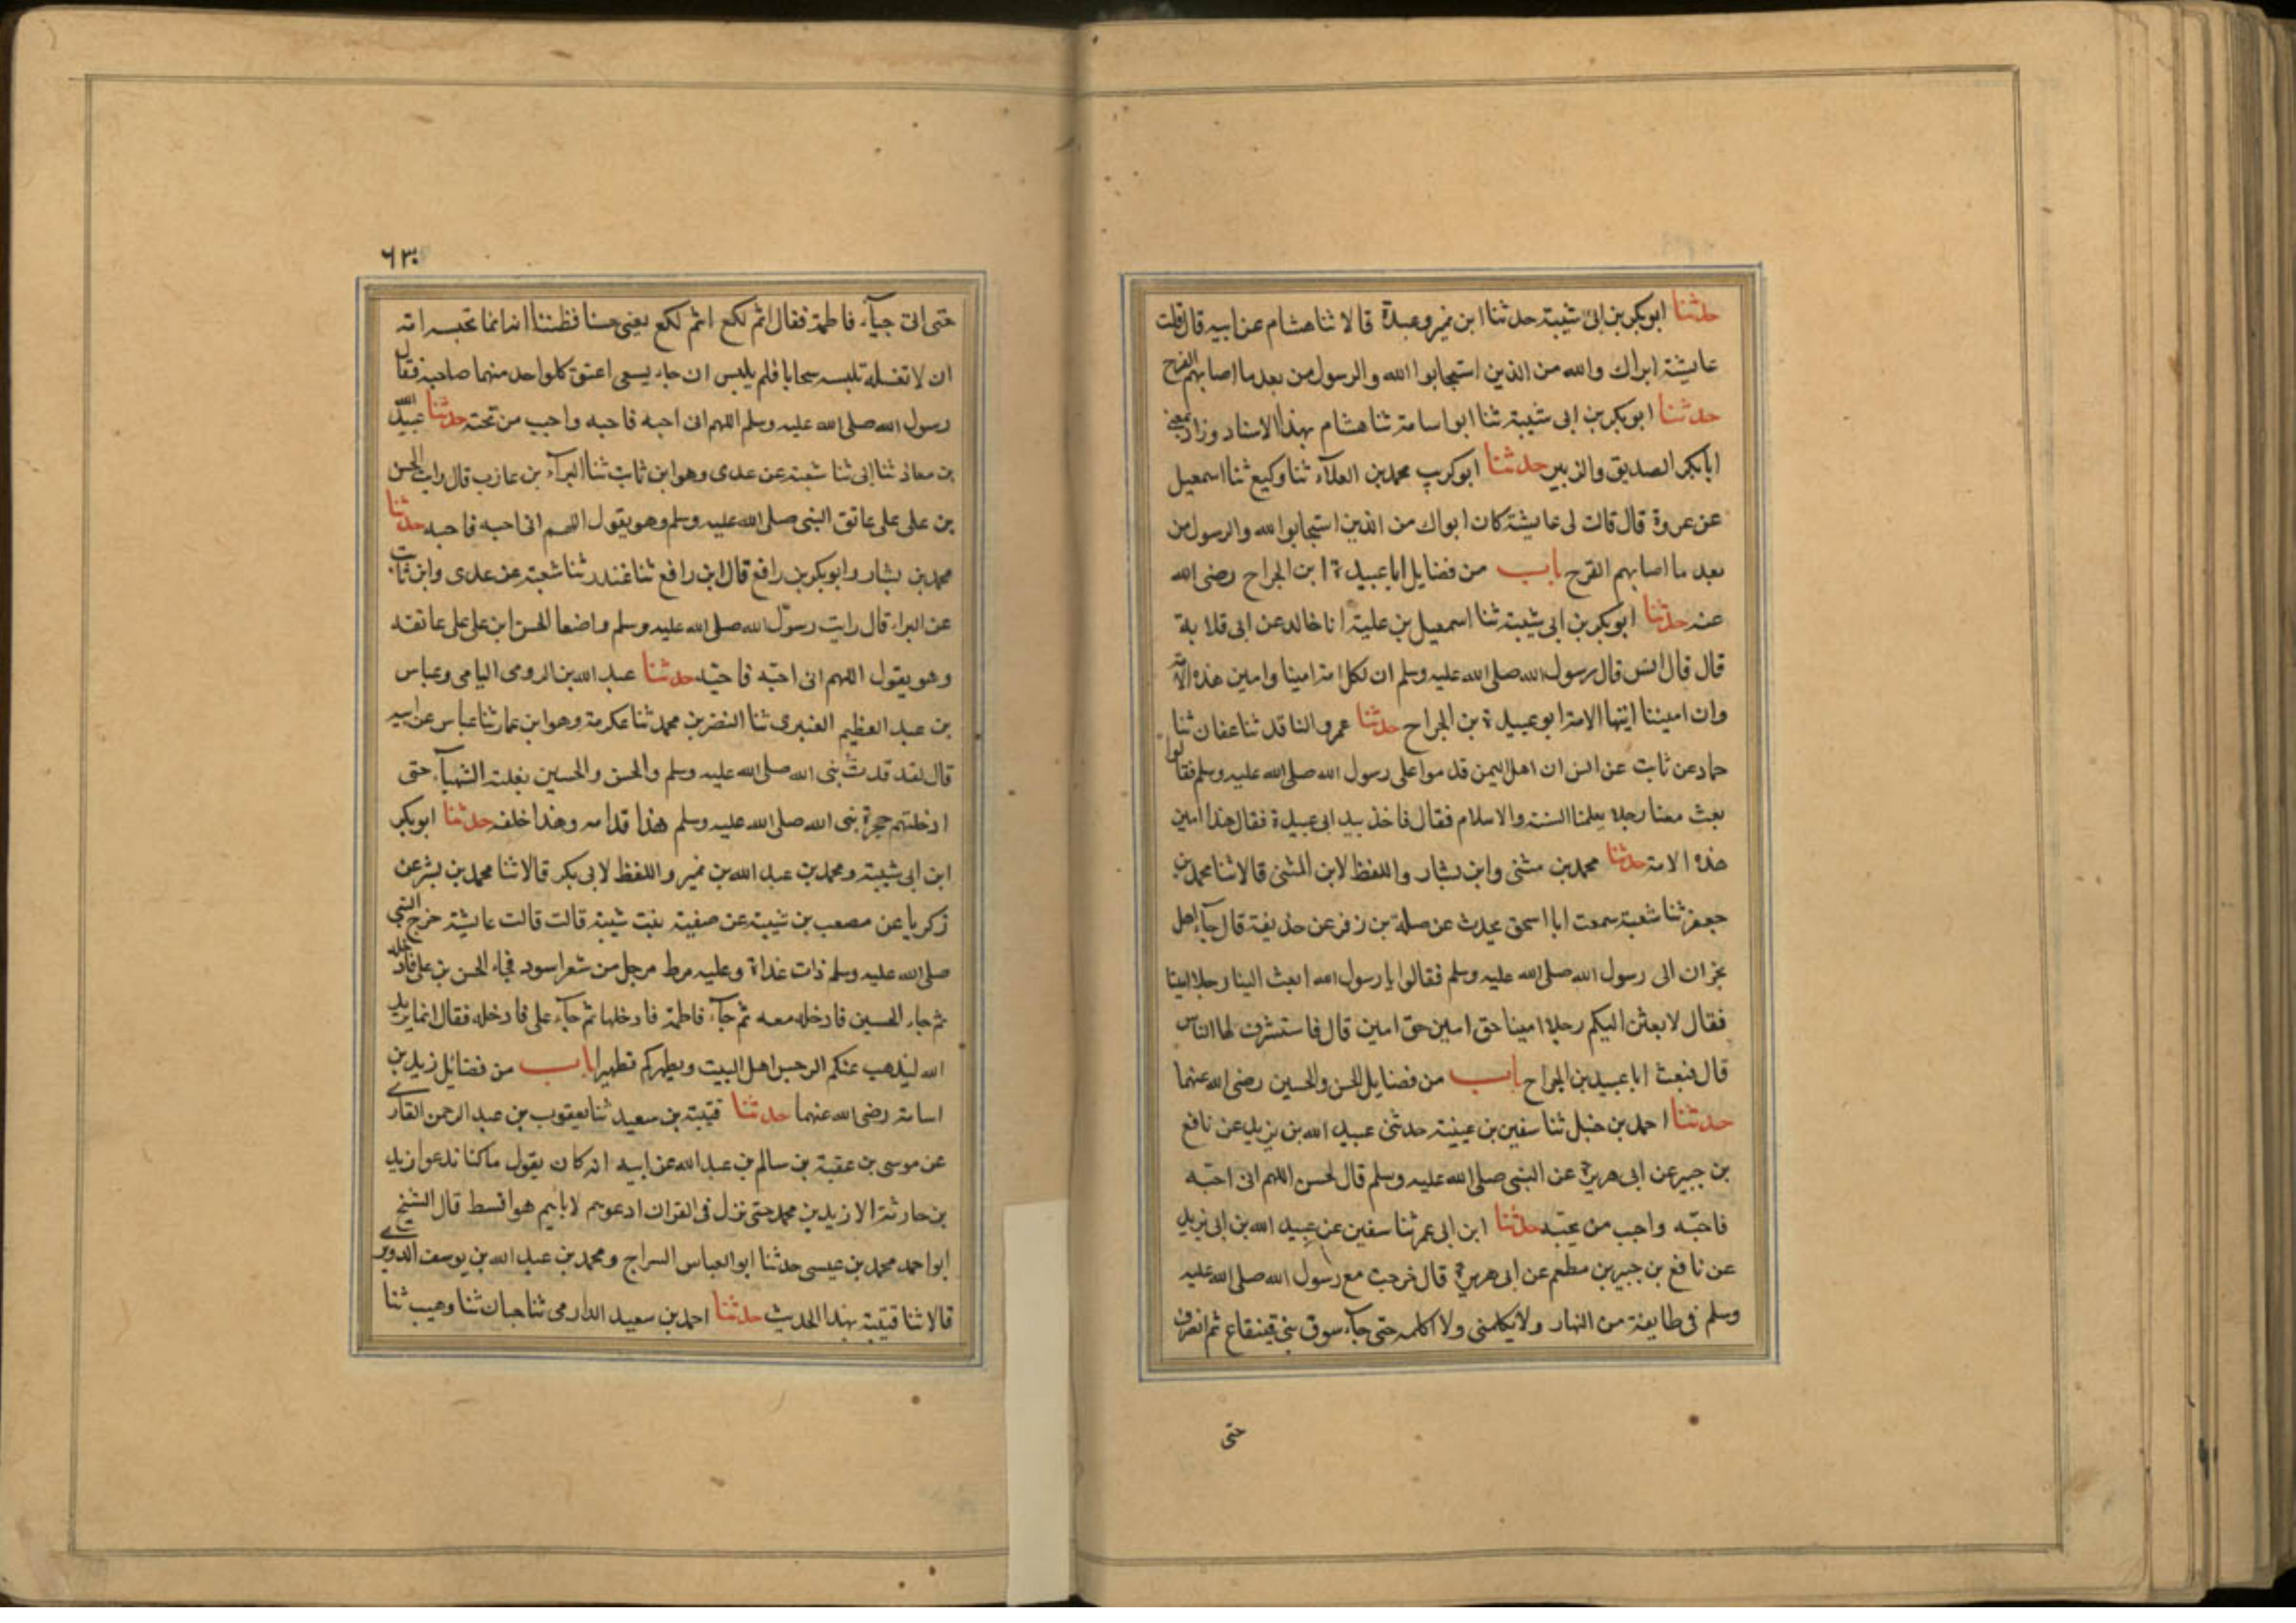 حدثنا ابوبكر بن ابى شيبة حدثنا ابن نمير وعبدة قالا ثنا هشام عن ابيه قال قالت
عايشة ابواك والله من الذين استجابوا الله والرسول من بعد ما اصابهم القرح
حدثنا ابوبكر بن ابى شيبة ثنا ابو اسامة ثنا هشام بهذا الاسناد وزاد يعنى
ابابكر الصديق والزبير حدثنا ابوكريب محمد بن العلآء ثنا وكيع ثنا اسمعيل
عن عروة قال قالت لى عايشة كان ابواك من الذين استجابوا الله والرسول من
بعد ما اصابهم القرح باب من فضايل ابا عبيدة ابن الجراح رضى الله
عنه حدثنا ابوبكر بن ابى شيبة ثنا اسمعيل بن علية انا خالد عن ابى قلابة
قال قال انس قال رسول الله صلى الله عليه وسلم ان لكل امة امينا وامين هذه الامة
وان اميننا ايتها الامة ابو عبيدة بن الجراح حدثنا عمرو الناقد ثنا عفان ثنا
حماد عن ثابت عن انس ان اهل اليمن قدموا على رسول الله صلى الله عليه وسلم فقالوا
بعث معنا رجلا يعلمنا السنة والاسلام فقال فاخذ بيد ابى عبيدة فقال هذا امين
هذه الامة حدثنا محمد بن مثنى وابن بشار واللفظ لابن المثنى قالا ثنا محمد بن
جعفر ثنا شعبة سمعت ابا اسحق يحدث عن صلة بن زفر عن حذيفة قال جآء اهل
نجران الى رسول الله صلى الله عليه وسلم فقالوا يا رسول الله ابعث الينا رجلا امينا
فقال لابعثن اليكم رجلا امينا حق امين حق امين قال فاستشرف لها الناس
قال فبعث ابا عبيد بن الجراح باب من فضايل الحسن والحسين رضى الله عنهما
حدثنا احمد بن حنبل ثنا سفين بن عيينة حدثنى عبيد الله بن يزيد عن نافع
بن جبير عن ابى هريرة عن النبى صلى الله عليه وسلم قال لحسن اللهم انى احبه
فاحبه واحب من يحبه حدثنا ابن ابى عمر ثنا سفين عن عبيد الله بن ابى يزيد
عن نافع بن جبير بن مطعم عن ابى هريرة قال خرجت مع رسول الله صلى الله عليه
وسلم فى طايفة من النهار ولا يكلمنى ولا اكلمه حتى جآء سوق بنى قينقاع ثم انصرف
حتى
٦٣٠
حتى اتى خبآء فاطمة فقال اثم لكع اثم لكع يعنى حسنا فظننا انه انما تحبسه امه
ان لا تغسله تلبسه سخابا فلم يلبس ان جاء يسعى اعتنق كلواحد منهما صاحبه فقال
رسول الله صلى الله عليه وسلم اللهم انى احبه فاحبه واحب من تحبه حدثنا عبيد الله
بن معاذ ثنا ابى ثنا شعبة عن عدى وهو ابن ثابت ثنا البرآء بن عازب قال رايت الحسن
بن على على عاتق النبى صلى الله عليه وسلم وهو يقول اللهم انى احبه فاحبه حدثنا
محمد بن بشار وابوبكر بن رافع قال ابن رافع ثنا غندر ثنا شعبة عن عدى وابن ثابت
عن البراء قال رايت رسول الله صلى الله عليه وسلم واضعا الحسن ابن على على عاتقه
وهو يقول اللهم انى احبه فاحبه حدثنا عبد الله بن الرومى اليامى وعباس
بن عبد العظيم العنبرى ثنا النضر بن محمد ثنا عكرمة وهو ابن عمار ثنا عباس عن ابيه
قال لقد قدت بنى الله صلى الله عليه وسلم والحسن والحسين بغلته الشهبآء حتى
ادخلتهم حجرة بنى الله صلى الله عليه وسلم هذا قدامه وهذا خلفه حدثنا ابوبكر
ابن ابى شيبة ومحمد بن عبد الله بن نمير واللفظ لابى بكر قالا ثنا محمد بن بشر عن
زكريا عن مصعب بن شيبة عن صفية بنت شيبة قالت قالت عايشة خرج النبى
صلى الله عليه وسلم ذات غداة وعليه مرط مرجل من شعر اسود فجاء الحسن بن على فادخله
ثم جاء الحسين فادخله معه ثم جآء فاطمة فادخلها ثم جآء على فادخله فقال انما يريد
الله ليذهب عنكم الرجس اهل البيت ويطهركم تطهيرا باب من فضائل زيد بن
اسامة رضى الله عنهما حدثنا قتيبة بن سعيد ثنا يعقوب بن عبد الرحمن القارى
عن موسى بن عقبة بن سالم بن عبد الله عن ابيه انه كان يقول ما كنا ندعوا زيد
بن حارثة الا زيد بن محمد حتى نزل فى القران ادعوهم لابايهم هو اقسط قال الشيخ
ابو احمد محمد بن عيسى حدثنا ابو العباس السراج ومحمد بن عبد الله بن يوسف الدويرى
قالا ثنا قتيبة بهذا الحديث حدثنا احمد بن سعيد الدارمى ثنا حبان ثنا وهيب ثنا